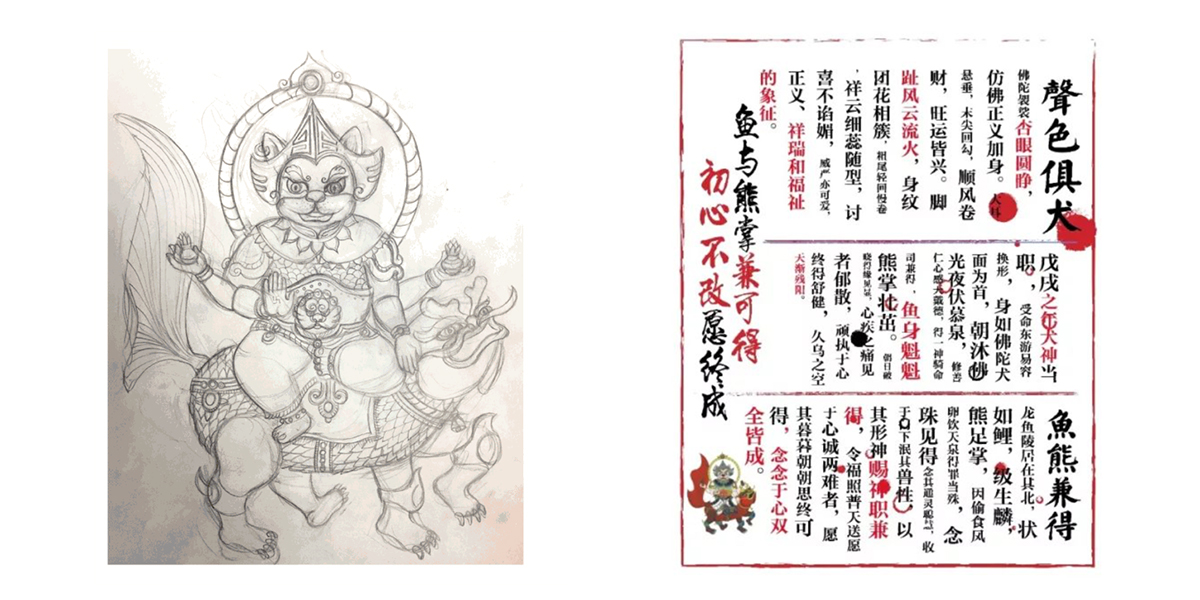 聲色俱犬
佛陀袈裟杏眼圆睁，
仿佛正义加身。犬耳
悬垂，末尖回勾，顺风卷
财，旺运皆兴。脚
趾风云流火，身纹
团花相簇，粗尾轻回慢卷
，祥云细蕊随型，讨
喜不谄媚，威严亦可爱，
正义、祥瑞和福祉
的象征。
戊戌之年犬神当
职，受命东游易容
换形，身如佛陀犬
面为首，朝沐佛
光夜伏慕泉，修善
仁心感天戴德，得一神骑命
司兼得，鱼身魁魁
熊掌壮茁。朝日破
晓得缘见，心疾之痛见
者郁散，顽执于心
终得舒健，久乌之空
天渐残阳。
魚熊兼得
龙鱼陵居在其北，状
如鲤，级生麟，
熊足掌，因偷食凤
卵饮天泉得罪当殊，念
珠见得念其通灵聪慧，收
于口下泯其兽性，以
其形神赐神职兼
得，令福照普天送愿
于心诚两难者，愿
其暮暮朝朝思终可
得，念念于心双
全皆成。
鱼与熊掌兼可得
初心不改愿终成